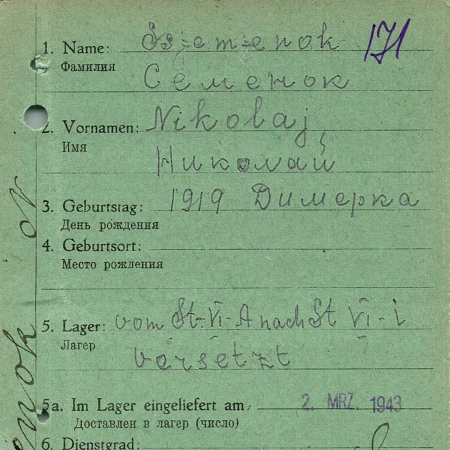 171
1. Name: Ssjemenok
Фамилия Семенок
2. Vornamen: Nikolaj
Имя Николай
3. Geburtstag: 1919 Димерка
День рождения
4. Geburtsort:
Место рождения
5. Lager: vom St-VI-A nach St VI-i
Лагер versetzt
5a. Im Lager eingeliefert am 2. MRZ. 1943
Доставлен в лагер (число)
6. Dienstgrad: